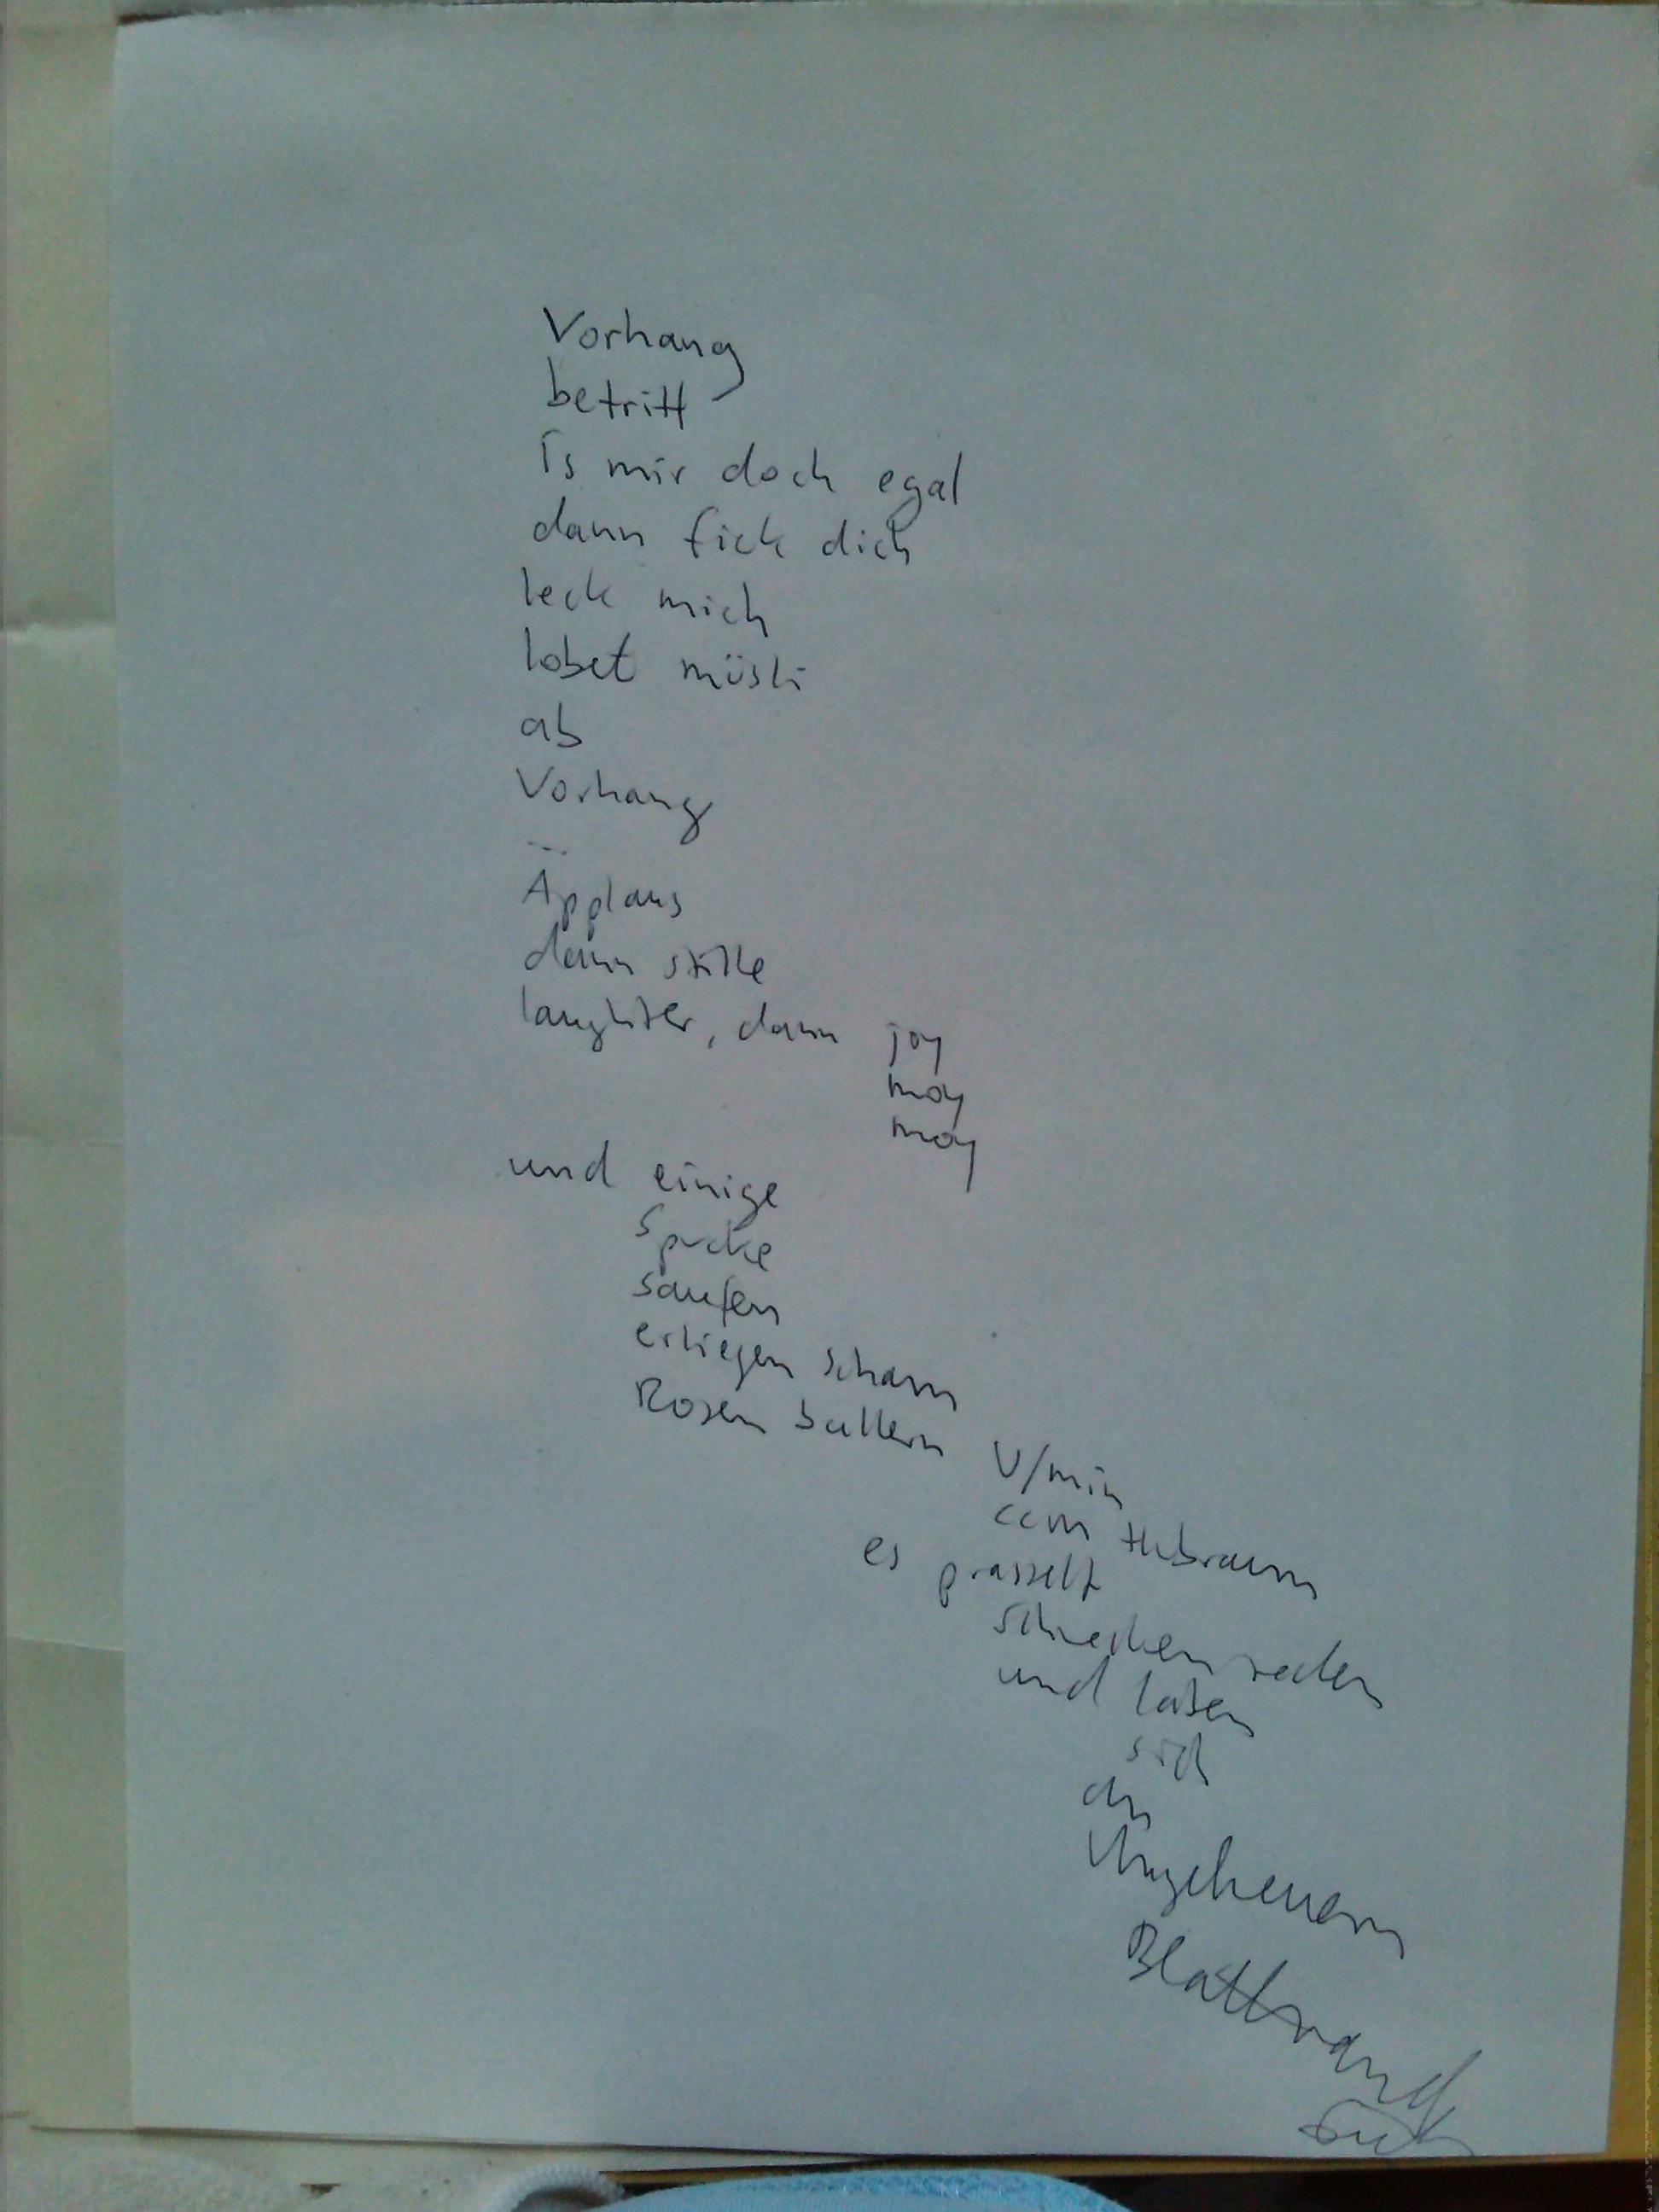 Vorhang
betritt
Is mir doch egal
dann fick dich
leck mich
lobet müsli
ab
Vorhang
...
Applaus
dann stille
laughter, dann joy
moy
moy
und einige
Spucke
saufen
erliegen scham
Rosen ballern
U/min
ccm Hubraum
es prasselt
Schnecken reden
und laben
sich
an
Ungeheuern
Blattrand